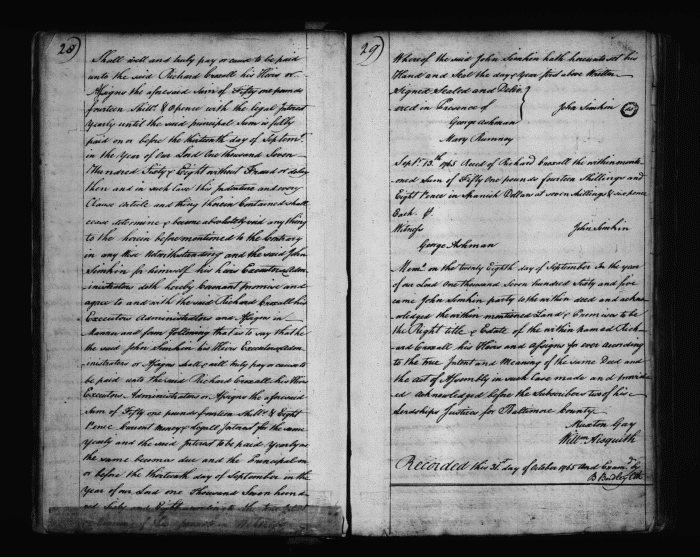 28
Shall well and truly pay or cause to be paid
unto the said Richard Croxall his Heirs or
Assigns the aforesaid Sum of Fifty one pounds
fourteen Shill.s & 8 pence with the legal Interest
yearly until the said principal Sum is fully
paid on or before the thirteenth day of Septem.r
in the Year of our Lord One Thousand Seven
Hundred Sixty & Eight without Fraud or delay
then and in such Case this Indenture and every
Clause Article and thing herein Contained shall
cease determine & become absolutely void any thing
to the herein before mentioned to the Contrary
in any wise Notwithstanding and the said John
Simkin for himself his heirs Executors Adm
inistrators doth hereby Covenant promise and
agree to and with the said Richard Croxall his
Executors Administrators and Assigns in
Manner and form following that is to say that he
the said John Simkin his Heirs Executors Adm
inistrators or Assigns shall & will truly pay or cause to
be paid unto the said Richard Croxall his Heirs
Executors Administrators or Assigns the aforesaid
Sum of Fifty one pounds fourteen Shill.s & Eight
Pence Current money & legal Interest for the same
yearly and the said Interest to be paid Yearly as
the same becomes due and the Principal on
or before the thirteenth day of September in the
year of our Lord one Thousand Seven hund
red Sixty and Eight according to the true Intent
29
Whereof the said John Simkin hath hereunto set his
Hand and Seal the day & Year first above Written
Signed Sealed and Deliv
ered in Presence of John Simkin
George Ashman
Mary Rumney
Sep.r 13.th 1765 Rec.d of Richard Croxall the within menti
oned Sum of Fifty one pounds fourteen Shillings and
Eight Pence in Spanish Dollars at seven shillings & six pence
Each
Witness John Simkin
George Ashman
Mem.o on the twenty Eighth day of September In the year
of our Lord One thousand Seven hundred Sixty and five
came John Simkin party to the within deed and ackno
wledged the within mentioned Land & Premises to be
the Right title & Estate of the within named Rich
ard Croxall his Heirs and Assigns for ever according
to the true Intent and Meaning of the same Deed and
the act of Assembly in such Case made and provid
ed acknowledged before the Subscribers two of his
Lordships Justices for Baltimore County
Nuxton Gay
Will.m Aisquith
Recorded this 31.st day of October 1765 And Exam.d by
B Bordley Clk